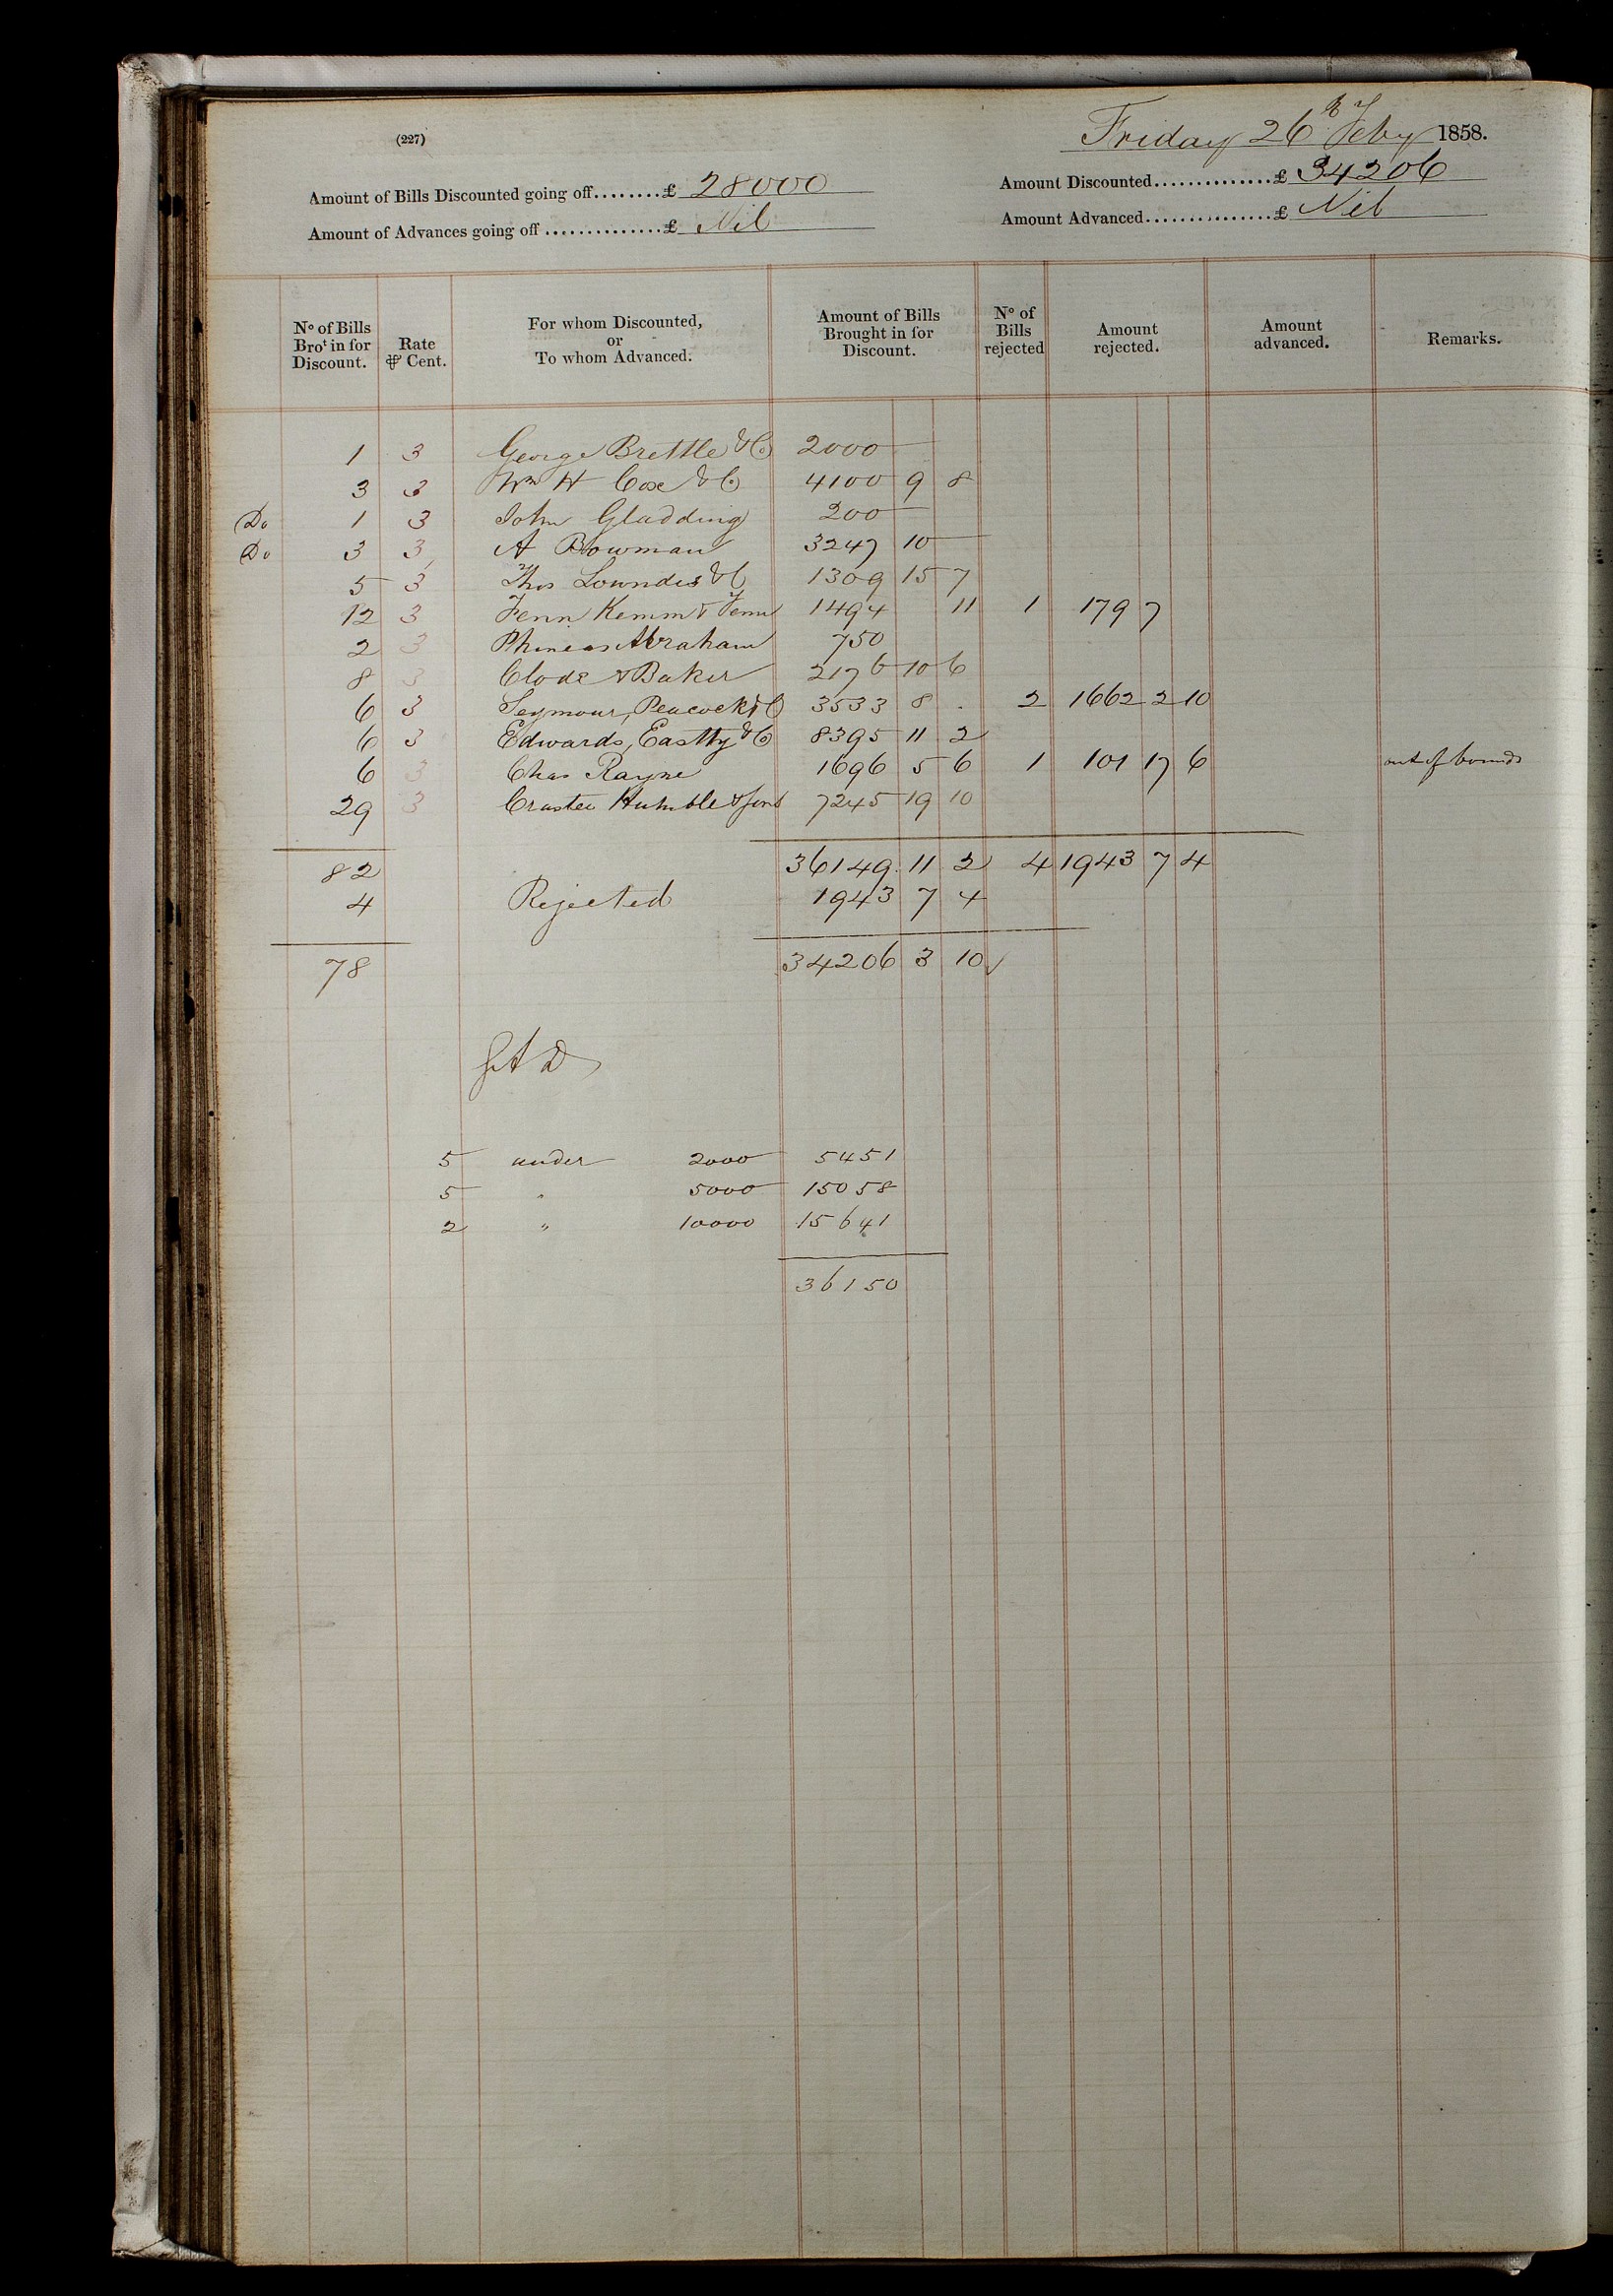 (227)
Friday 26th Feby 1858.
Amount of Bills Discounted going off........£ 28000
Amount Discounted..............£ 34206
Amount of Advances going off ..............£ Nil
Amount Advanced...............£ Nil
No of Bills Brot in for Discount.
Rate ⅌ Cent.
For whom Discounted, or To whom Advanced.
Amount of Bills Brought in for Discount.
No of Bills rejected
Amount rejected.
Amount advanced.
Remarks.
1 3 George Brettle & Co 2000
3 3 Wm H Cox & Co 4100 9 8
Do 1 3 John Gladding 200
Do 3 3 A Bowman 3247 10
5 3 Thos Lowndes & Co 1309 15 7
12 3 Fenn Kemm & Fenn 1494 11 1 179 7
2 3 Phineas Abraham 750
8 3 Clode & Baker 2176 10 6
6 3 Seymour, Peacock & Co 3533 8 . 2 1662 2 10
6 3 Edwards, Eastty & Co 8395 11 2
6 3 Chas Rayne 1696 5 6 1 101 17 6 out of bounds
29 3 Craster Humble & Sons 7245 19 10
82 36149 11 2 4 1943 7 4
4 Rejected 1943 7 4
78 34206 3 10
5 under 2000 5451
5 " 5000 15058
2 " 10000 15641
36150